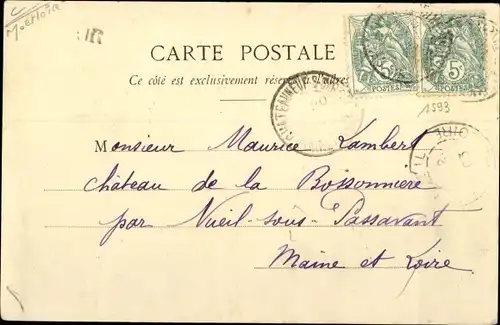 CARTE POSTALE
Ce côté est exclusivement réservé à l'adresse
5
POSTES
POSTES
1593
CHATEAUNEUF
Monsieur Maurice Lambert
château de la Boissonnière
par Nueil-sous-Passavant
Maine et Loire